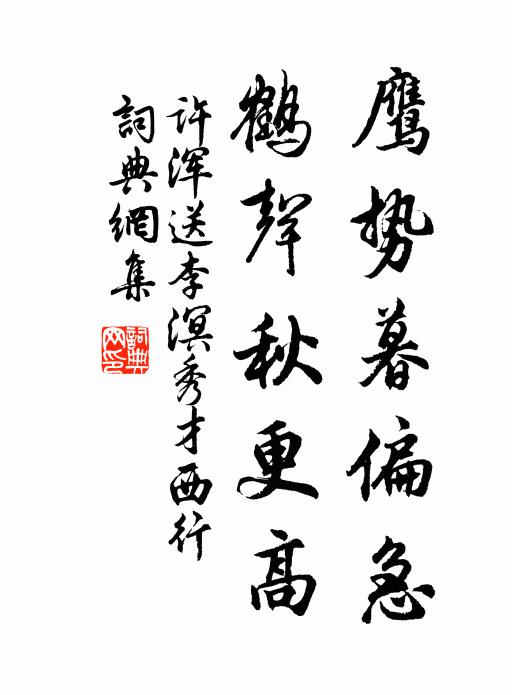 鹰势暮偏急
鹤聲秋更高
许浑送李溟秀才西行
詞典網集
詞典网印